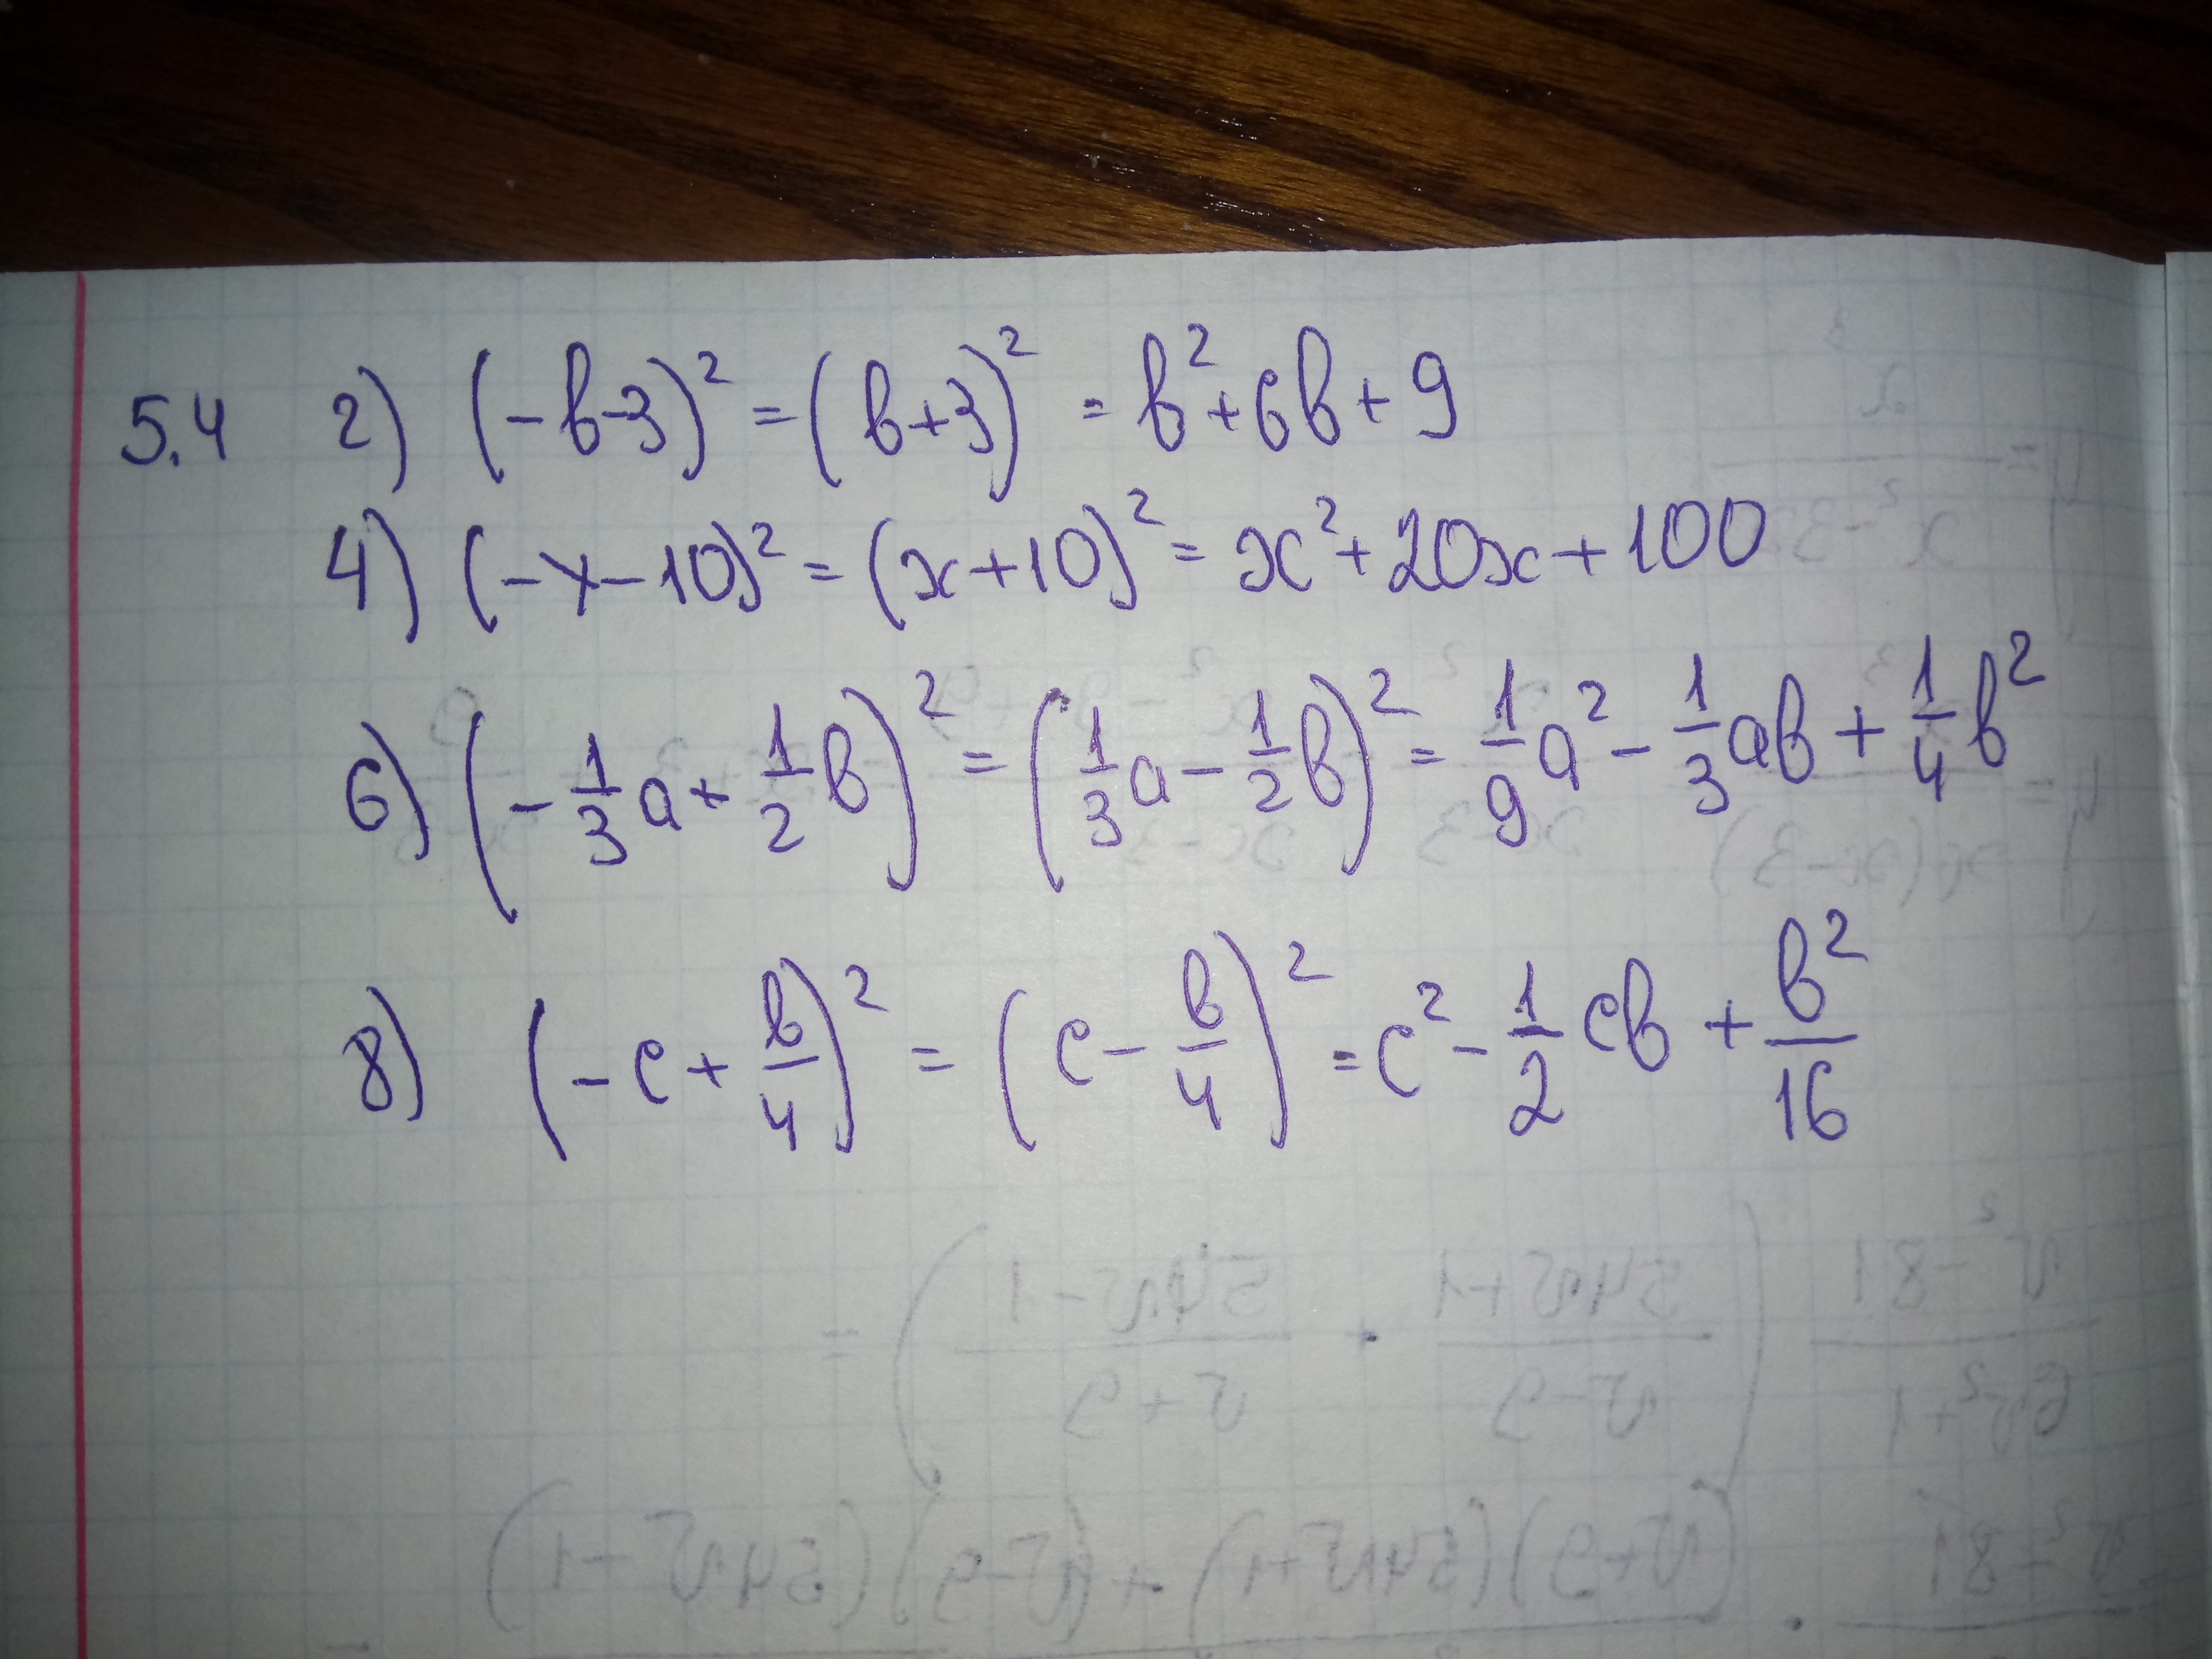 5.4 2) (-b-3)² = (b+3)² = b²+6b+9
4) (-x-10)² = (x+10)² = x²+20x+100
6) (-1/3a+1/2b)² = (1/3a-1/2b)² = 1/9a²-1/3ab+1/4b²
8) (-c+b/4)² = (c-b/4)² = c²-1/2cb+b²/16